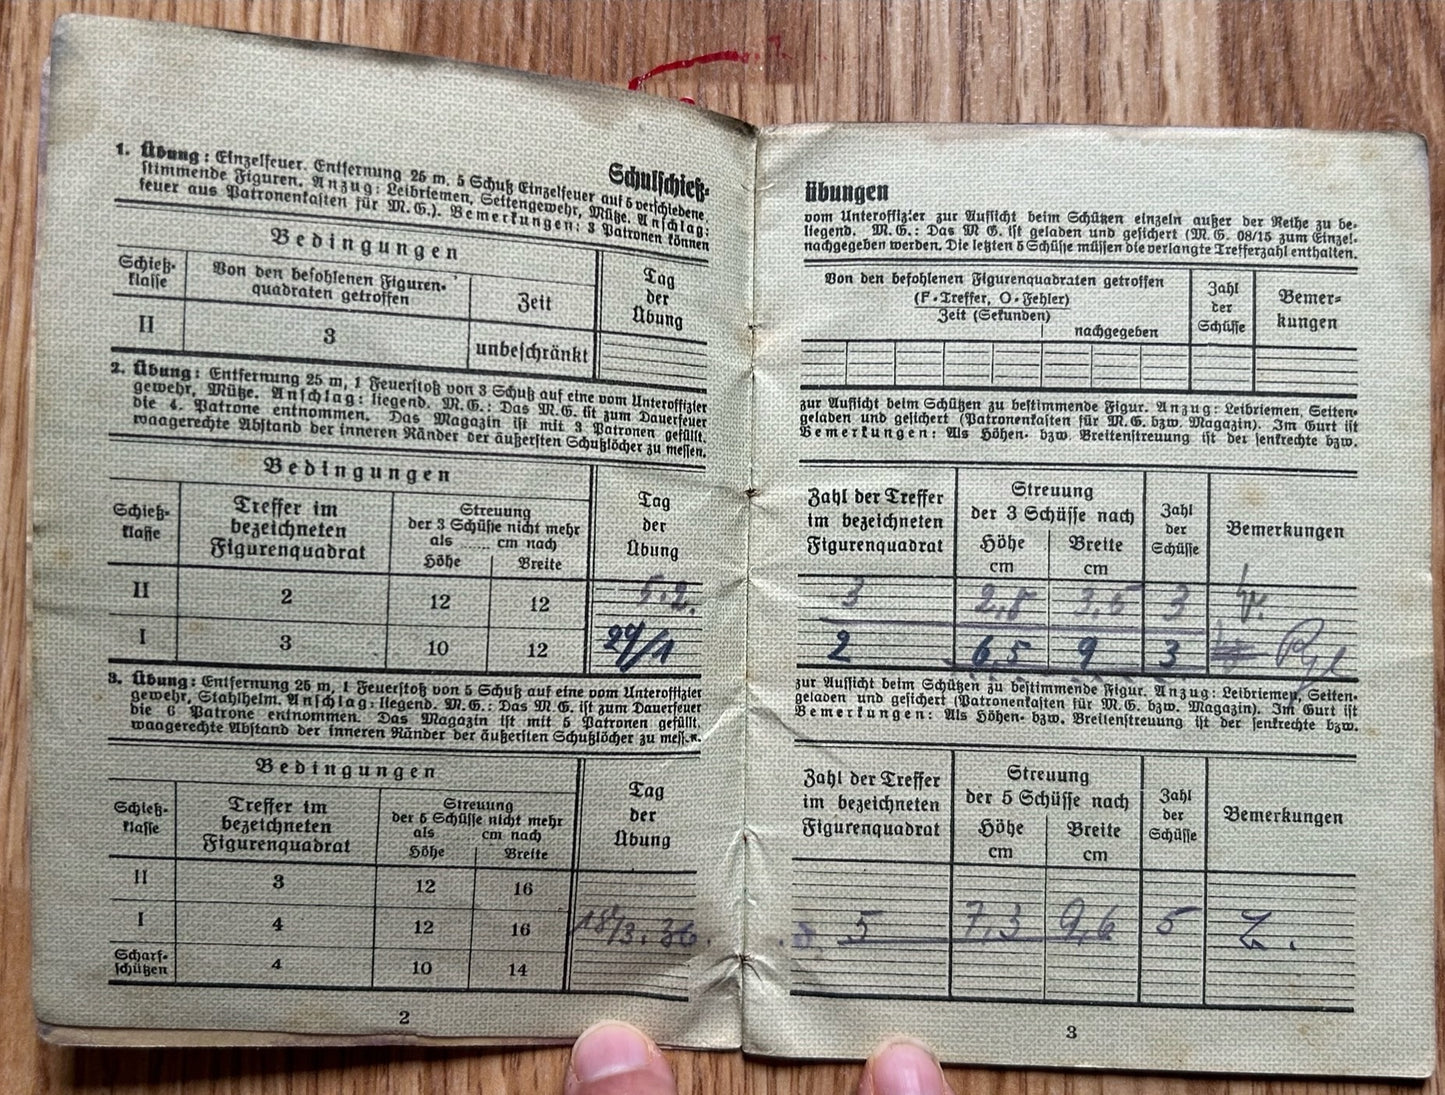 Schulschieß-
1. Übung: Einzelfeuer. Entfernung 25 m. 5 Schuß Einzelfeuer auf 5 verschiedene,
stimmende Figuren. Anzug: Leibriemen, Seitengewehr, Mütze. Anschlag:
feuer aus Patronenkasten für M.G.). Bemerkungen: 3 Patronen können
Bedingungen
Schieß-
klasse
Von den befohlenen Figuren-
quadraten getroffen
Zeit
Tag
der
Übung
II
3
unbeschränkt
2. Übung: Entfernung 25 m, 1 Feuerstoß von 3 Schuß auf eine vom Unteroffizier
gewehr, Mütze. Anschlag: liegend. M.G.: Das M.G. ist zum Dauerfeuer
die 4. Patrone entnommen. Das Magazin ist mit 3 Patronen gefüllt.
waagerechte Abstand der inneren Ränder der äußersten Schußlöcher zu messen.
Bedingungen
Schieß-
klasse
Treffer im
bezeichneten
Figurenquadrat
Streuung
der 3 Schüsse nicht mehr
als ...... cm nach
Höhe
Breite
Tag
der
Übung
II
2
12
12
5.2.
I
3
10
12
29/1
3. Übung: Entfernung 25 m, 1 Feuerstoß von 5 Schuß auf eine vom Unteroffizier
gewehr, Stahlhelm. Anschlag: liegend. M.G.: Das M.G. ist zum Dauerfeuer
die 6 Patrone entnommen. Das Magazin ist mit 5 Patronen gefüllt.
waagerechte Abstand der inneren Ränder der äußersten Schußlöcher zu messen.
Bedingungen
Schieß-
klasse
Treffer im
bezeichneten
Figurenquadrat
Streuung
der 5 Schüsse nicht mehr
als cm nach
Höhe
Breite
Tag
der
Übung
II
3
12
16
I
4
12
16
18/3.36.
Scharf-
schützen
4
10
14
2
übungen
vom Unteroffizier zur Aufsicht beim Schützen einzeln außer der Reihe zu be-
liegend. M.G.: Das M G. ist geladen und gesichert (M.G. 08/15 zum Einzel-
nachgegeben werden. Die letzten 5 Schüsse müssen die verlangte Trefferzahl enthalten.
Von den befohlenen Figurenquadraten getroffen
(F-Treffer, O-Fehler)
Zeit (Sekunden)
nachgegeben
Zahl
der
Schüsse
Bemer-
kungen
zur Aufsicht beim Schützen zu bestimmende Figur. Anzug: Leibriemen, Seiten-
geladen und gesichert (Patronenkasten für M.G. bzw. Magazin). Im Gurt ist
Bemerkungen: Als Höhen- bzw. Breitenstreuung ist der senkrechte bzw.
Zahl der Treffer
im bezeichneten
Figurenquadrat
Streuung
der 3 Schüsse nach
Höhe
cm
Breite
cm
Zahl
der
Schüsse
Bemerkungen
3
2,8
3,5
3
2
6,5
9
3
zur Aufsicht beim Schützen zu bestimmende Figur. Anzug: Leibriemen, Seiten-
geladen und gesichert (Patronenkasten für M.G. bzw. Magazin). Im Gurt ist
Bemerkungen: Als Höhen- bzw. Breitenstreuung ist der senkrechte bzw.
Zahl der Treffer
im bezeichneten
Figurenquadrat
Streuung
der 5 Schüsse nach
Höhe
cm
Breite
cm
Zahl
der
Schüsse
Bemerkungen
5
7,3
9,6
5
Z.
3